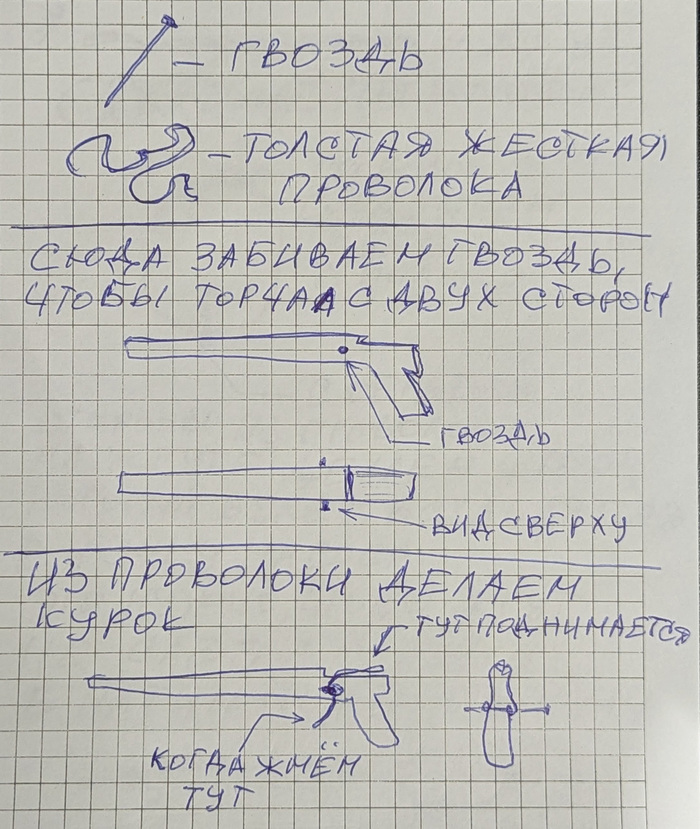 — ГВОЗДЬ
— ТОЛСТАЯ ЖЕСТКАЯ
ПРОВОЛОКА
СЮДА ЗАБИВАЕМ ГВОЗДЬ,
ЧТОБЫ ТОРЧАЛ С ДВУХ СТОРОН
ГВОЗДЬ
ВИД СВЕРХУ
ИЗ ПРОВОЛОКИ ДЕЛАЕМ
КУРОК
ТУТ ПОДНИМАЕТСЯ
КОГДА ЖМЁМ
ТУТ